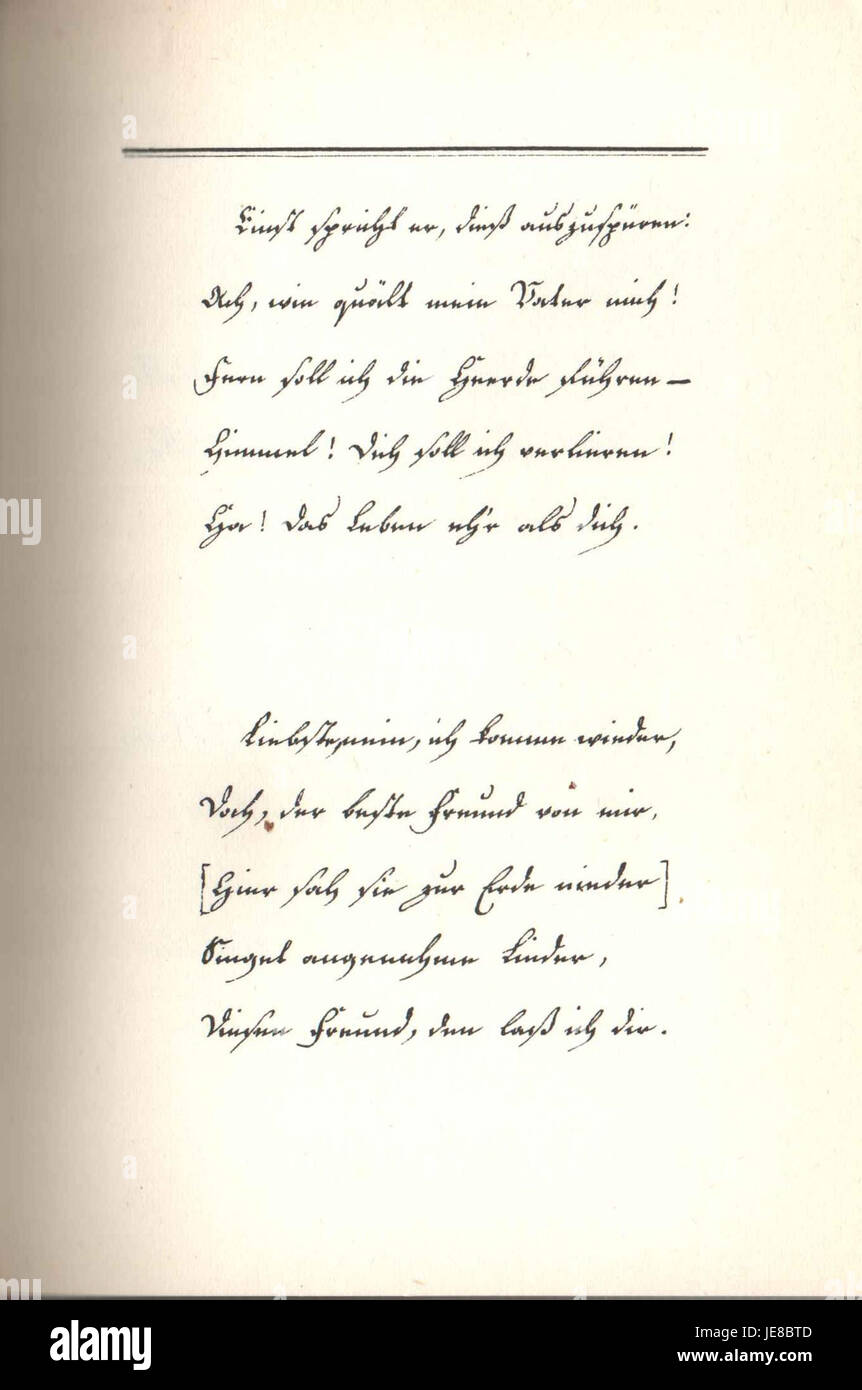 Einst spricht er, dieß auszuspüren:
Ach, wie quält mein Vater mich!
Fern soll ich die Heerde führen—
Himmel! Dich soll ich verlieren!
Ha! Das Leben eh'r als dich.
Liebste, nein, ich komme wieder,
Doch, der beste Freund von mir,
[Hier sah sie zur Erde nieder]
Singet angenehme Lieder,
Diesen Freund, den laß ich dir.
a
a
a
a
a
a
a
alamy
alamy
alamy
Image ID: JE8BTD
www.alamy.com